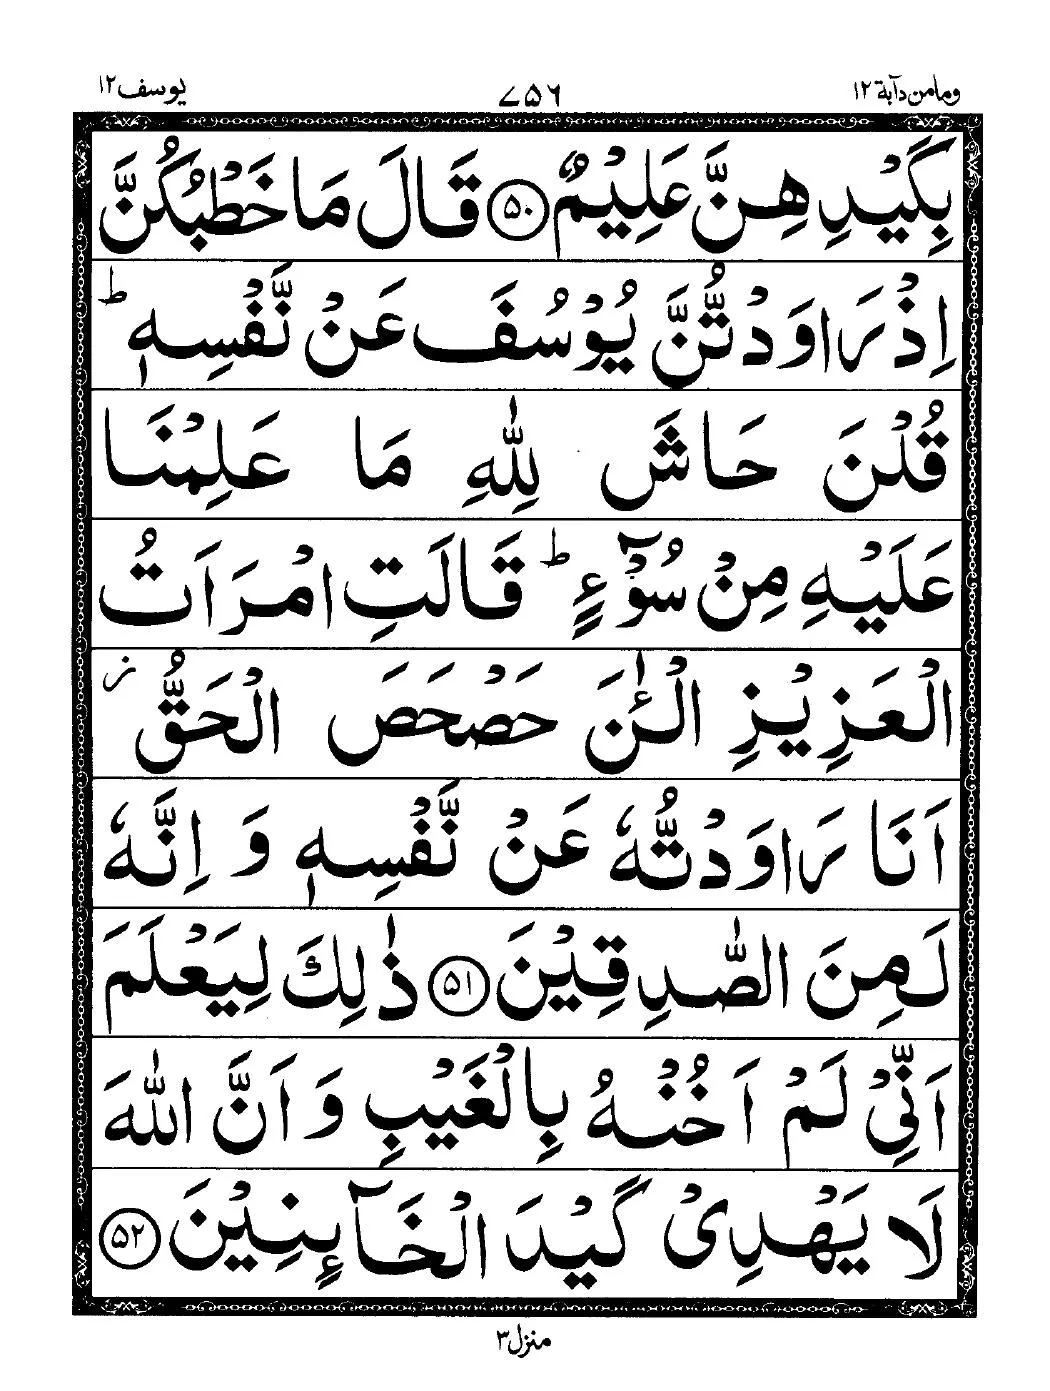 وما من دآبة ۱۲ ۷۵۶ یوسف ۱۲
بِكَيْدِهِنَّ عَلِيْمٌ ۝۵۰ قَالَ مَا خَطْبُكُنَّ
اِذْ رَاوَدْتُّنَّ يُوْسُفَ عَنْ نَّفْسِهٖ ؕ
قُلْنَ حَاشَ لِلّٰهِ مَا عَلِمْنَا
عَلَيْهِ مِنْ سُوْٓءٍ ؕ قَالَتِ امْرَاَتُ
الْعَزِيْزِ الْـٰٔنَ حَصْحَصَ الْحَقُّ ز
اَنَا رَاوَدْتُّهٗ عَنْ نَّفْسِهٖ وَ اِنَّهٗ
لَمِنَ الصّٰدِقِيْنَ ۝۵۱ ذٰلِكَ لِيَعْلَمَ
اَنِّيْ لَمْ اَخُنْهُ بِالْغَيْبِ وَ اَنَّ اللّٰهَ
لَا يَهْدِيْ كَيْدَ الْخَآئِنِيْنَ ۝۵۲
منزل ۳